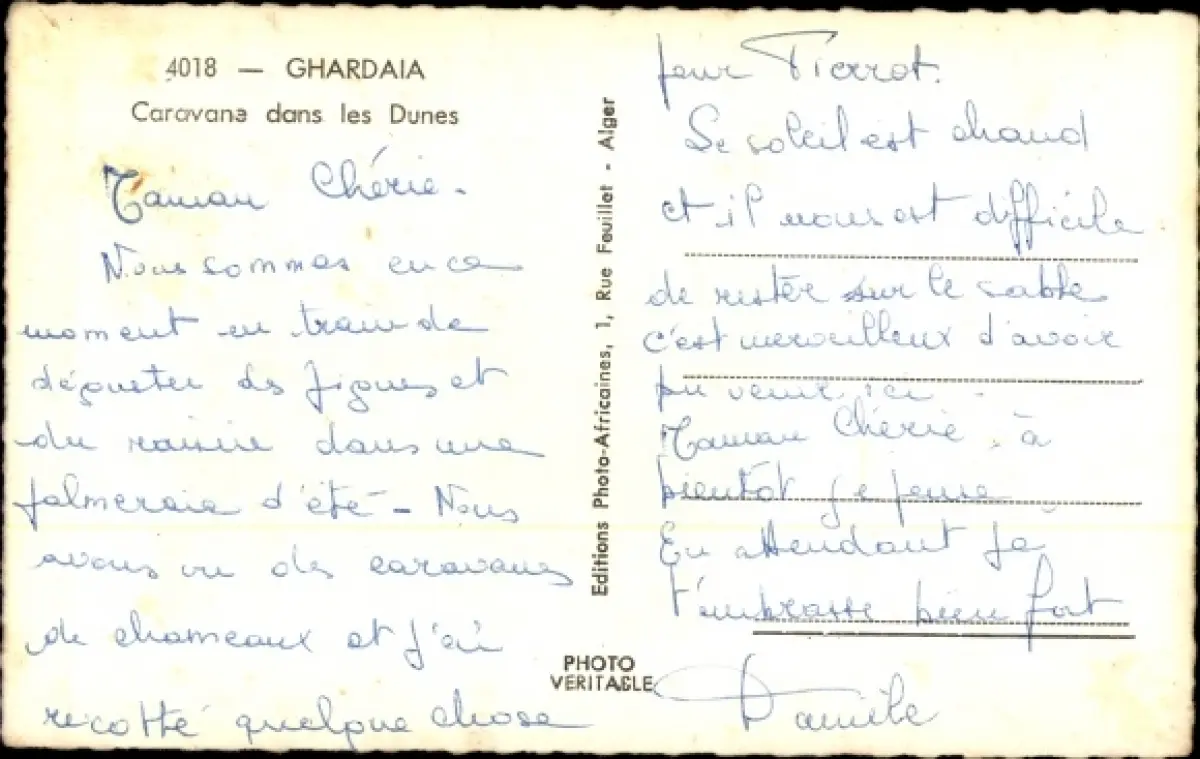 4018 — GHARDAIA
Caravane dans les Dunes
Maman Chérie -
Nous sommes en ce
moment en train de
déguster des figues et
du raisin dans une
palmeraie d'été - Nous
avons vu des caravanes
de chameaux et j'ai
récolté quelque chose
Editions Photo-Africaines, 1, Rue Feuillet - Alger
PHOTO
VERITABLE
pour Pierrot.
Le soleil est chaud
et il nous est difficile
de rester sur le sable
c'est merveilleux d'avoir
pu venir ici.
Maman Chérie, à
bientôt je pense
En attendant je
t'embrasse bien fort